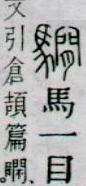 馬一目
文引倉頡篇瞷、